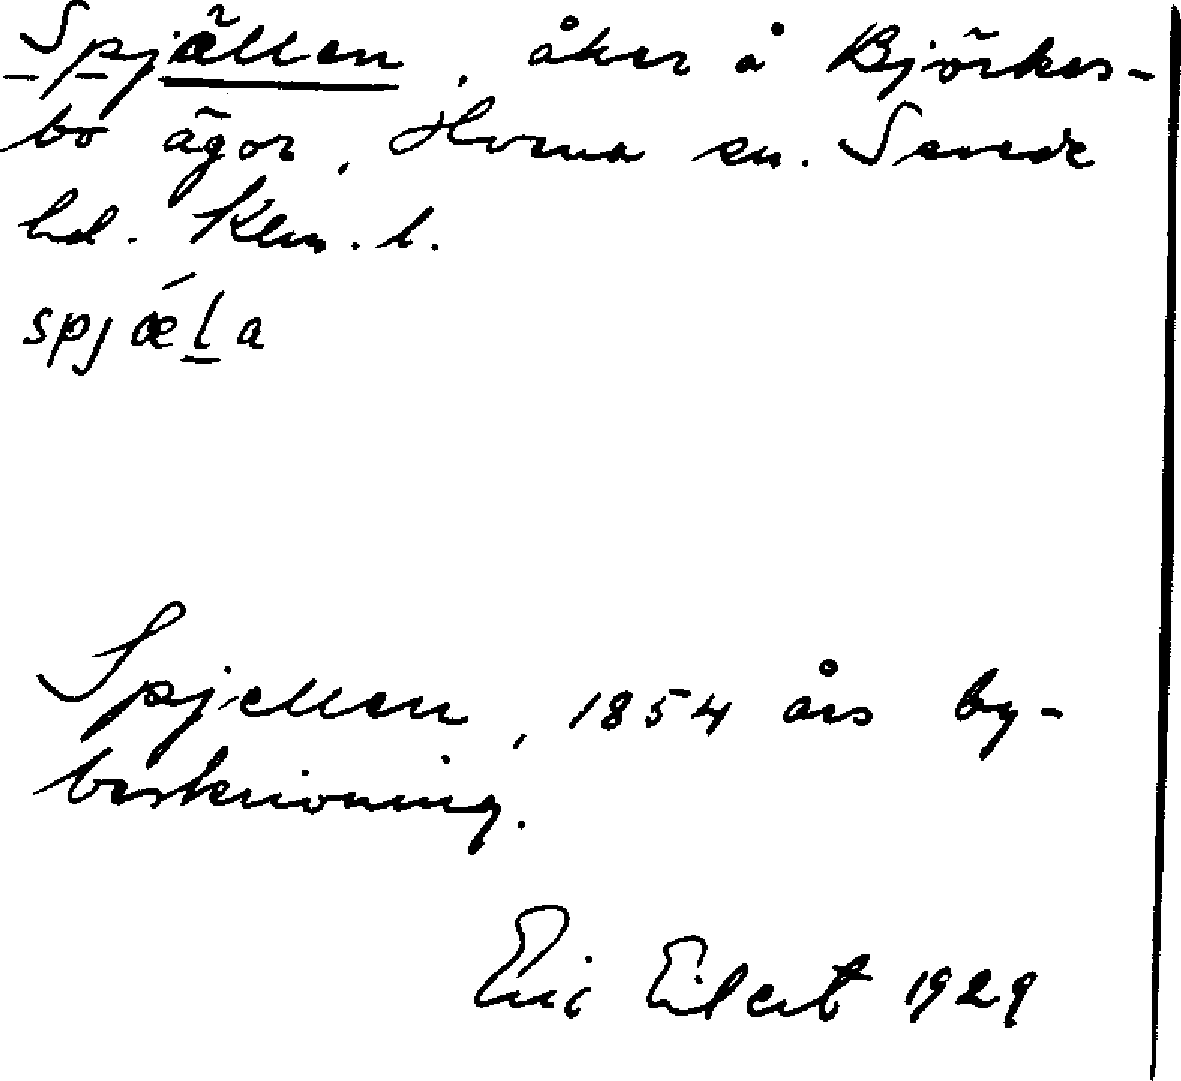 Spjällen, åker å Björkes-
bo ägor, Horna sn. Sevede
hd. Klm. l.
spjǽla
Spjellen, 1854 års by-
beskrivning.
Eric Eilert 1929